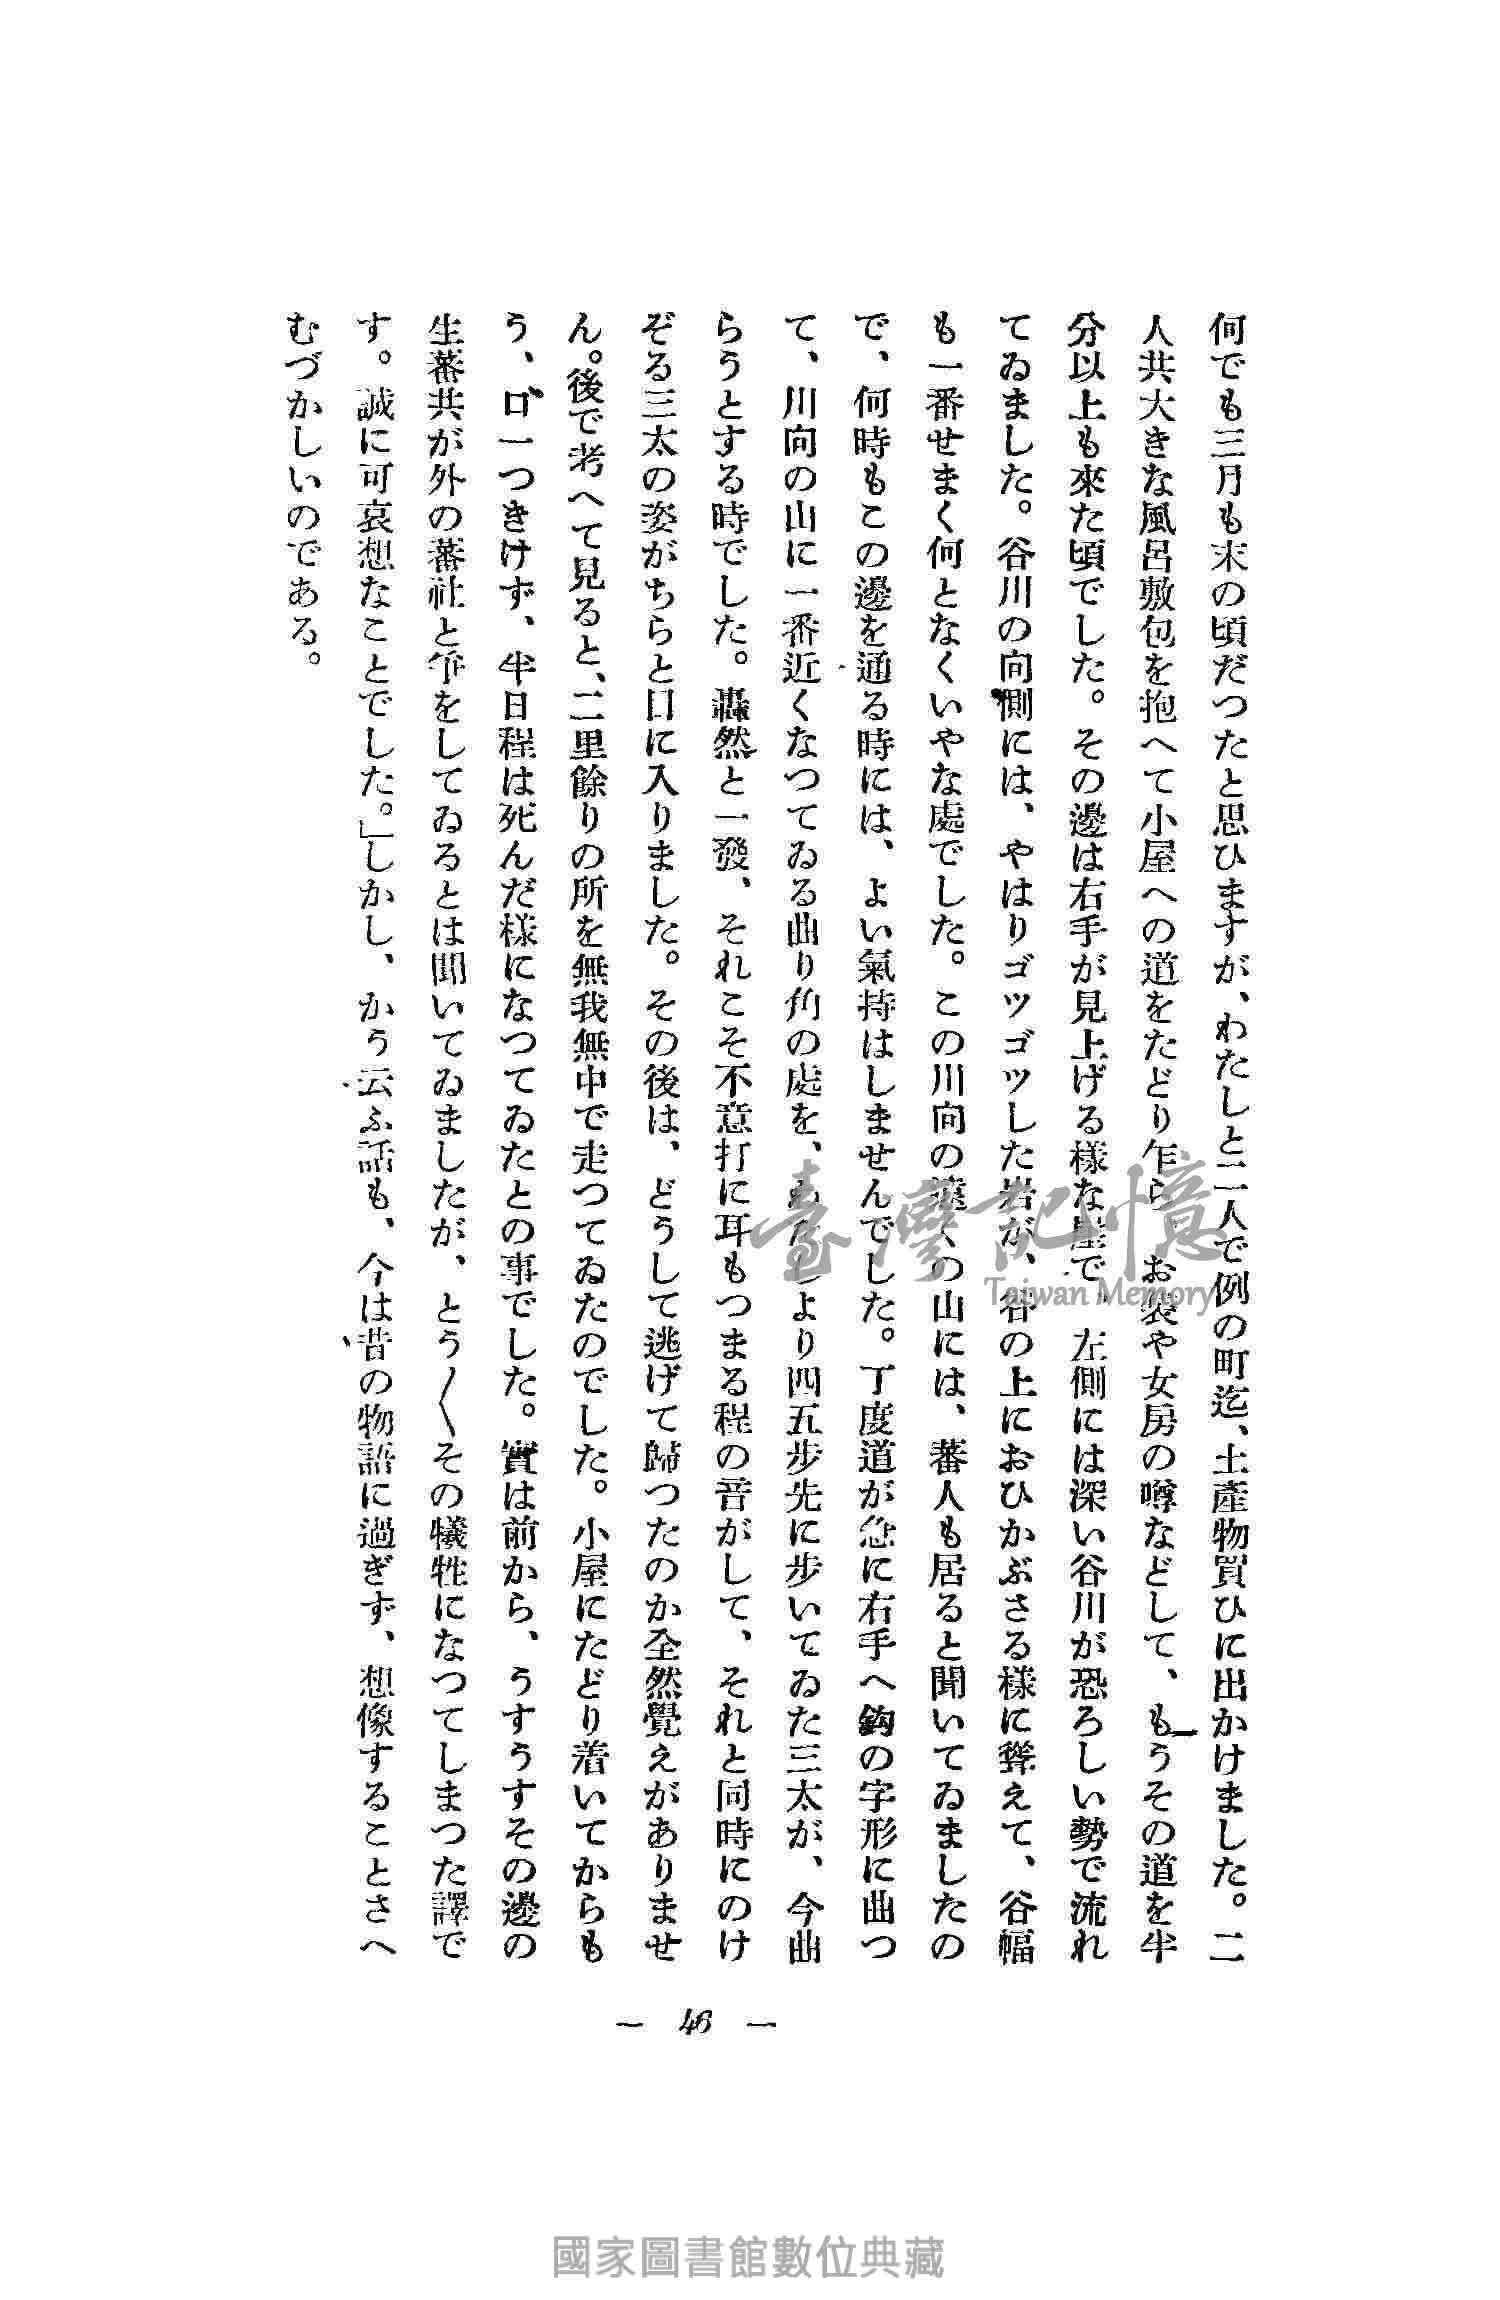 何でも三月も末の頃だつたと思ひますが、わたしと二人で例の町迄、土產物買ひに出かけました。二
人共大きな風呂敷包を抱へて小屋への道をたどり乍ら、お袋や女房の噂などして、もうその道を半
分以上も來た頃でした。その邊は右手が見上げる樣な崖で、左側には深い谷川が恐ろしい勢で流れ
てゐました。谷川の向側には、やはりゴツゴツした岩が、谷の上におひかぶさる樣に聳えて、谷幅
も一番せまく何となくいやな處でした。この川向の遠くの山には、蕃人も居ると聞いてゐましたの
で、何時もこの邊を通る時には、よい氣持はしませんでした。丁度道が急に右手へ鈎の字形に曲つ
て、川向の山に一番近くなつてゐる曲り角の處を、わたしより四五步先に步いてゐた三太が、今曲
らうとする時でした。轟然と一發、それこそ不意打に耳もつまる程の音がして、それと同時にのけ
ぞる三太の姿がちらと目に入りました。その後は、どうして逃げて歸つたのか全然覺えがありませ
ん。後で考へて見ると、二里餘りの所を無我無中で走つてゐたのでした。小屋にたどり着いてからも
う、口一つきけず、半日程は死んだ樣になつてゐたとの事でした。實は前から、うすうすその邊の
生蕃共が外の蕃社と爭をしてゐるとは聞いてゐましたが、とう〳〵その犧牲になつてしまつた譯で
す。誠に可哀想なことでした。」しかし、かう云ふ話も、今は昔の物語に過ぎず、想像することさへ
むづかしいのである。
— 46 —
臺灣記憶
Taiwan Memory
國家圖書館數位典藏